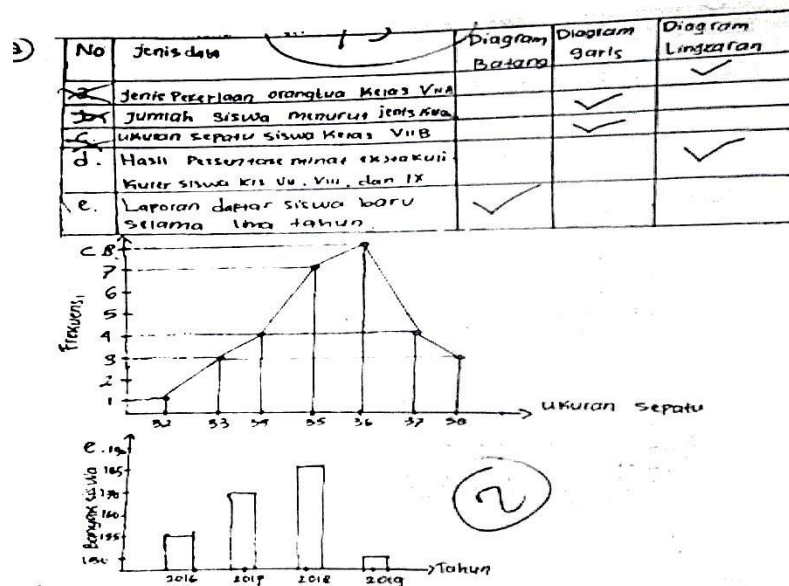 No Jenis data Diagram Batang Diagram garis Diagram Lingkaran
1
a. Jenis Pekerjaan orangtua Kelas VIIA
b. Jumlah siswa menurut jenis
c. ukuran sepatu siswa Kelas VIIB
d. Hasil Persentase minat ekstrakuli
kuler siswa Kls VII, VIII, dan IX
e. Laporan daftar siswa baru
selama lima tahun.
c 8
7
6
5
4
3
2
1
Frekuensi
32 33 34 35 36 37 38
ukuran sepatu
e.
185
170
160
155
150
Banyak siswa
2
2016 2017 2018 2019
Tahun